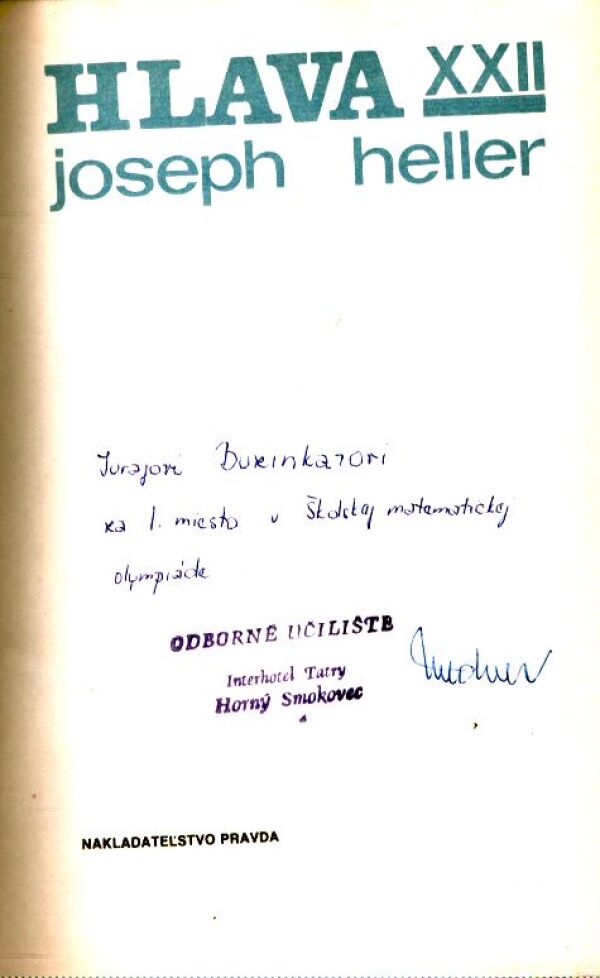 HLAVA XXII
joseph heller
Jurajovi
za 1. miesto v Školskej matematickej
olympiáde
ODBORNÉ UČILIŠTE
Interhotel Tatry
Horný Smokovec
NAKLADATEĽSTVO PRAVDA